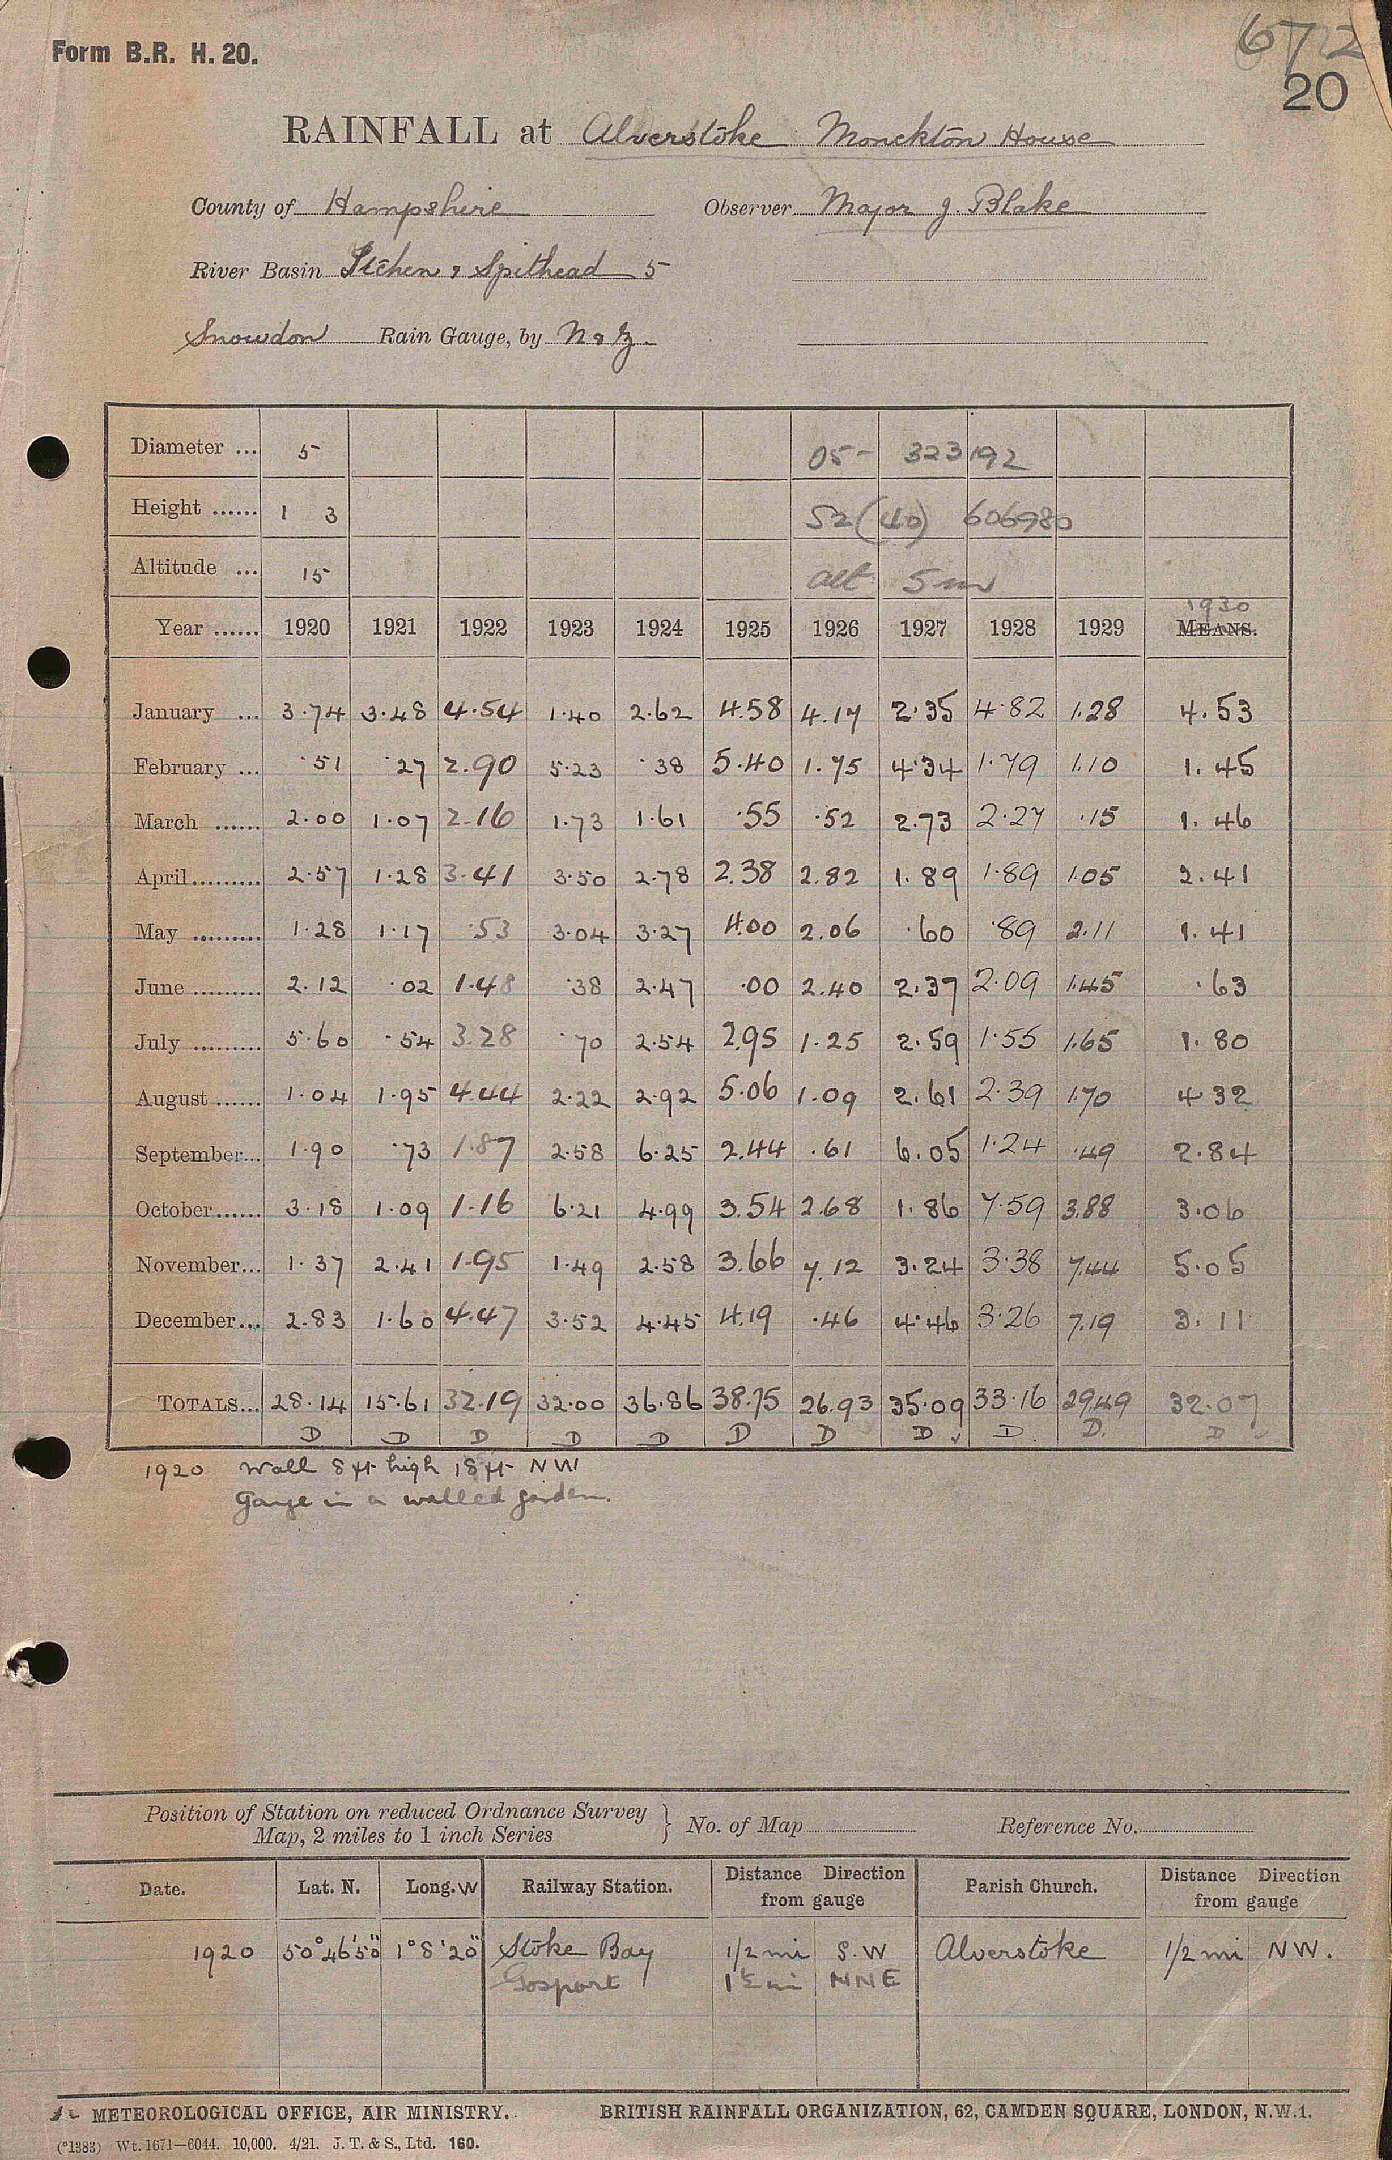 Form B.R. H. 20.
672
20
RAINFALL at Alverstoke Monckton House
County of Hampshire Observer Major J. Blake
River Basin Itchen & Spithead 5
Snowdon Rain Gauge, by N & Z.
Diameter ... 5 05- 323192
Height ...... 1 3 52 (40) 606980
Altitude ... 15 alt 5m
1930
Year ...... 1920 1921 1922 1923 1924 1925 1926 1927 1928 1929 MEANS.
January ... 3.74 3.48 4.54 1.40 2.62 4.58 4.17 2.35 4.82 1.28 4.53
February ... .51 .27 2.90 5.23 .38 5.40 1.75 4.34 1.79 1.10 1.45
March ...... 2.00 1.07 2.16 1.73 1.61 .55 .52 2.73 2.27 .15 1.46
April......... 2.57 1.28 3.41 3.50 2.78 2.38 2.82 1.89 1.89 1.05 2.41
May ......... 1.28 1.17 .53 3.04 3.27 4.00 2.06 .60 .89 2.11 1.41
June ......... 2.12 .02 1.48 .38 2.47 .00 2.40 2.37 2.09 1.45 .63
July ......... 5.60 .54 3.28 .70 2.54 2.95 1.25 2.59 1.55 1.65 1.80
August ...... 1.04 1.95 4.44 2.22 2.92 5.06 1.09 2.61 2.39 1.70 4.32
September... 1.90 .73 1.87 2.58 6.25 2.44 .61 6.05 1.24 .49 2.84
October...... 3.18 1.09 1.16 6.21 4.99 3.54 2.68 1.86 7.59 3.88 3.06
November... 1.37 2.41 1.95 1.49 2.58 3.66 7.12 3.24 3.38 7.44 5.05
December... 2.83 1.60 4.47 3.52 4.45 4.19 .46 4.46 3.26 7.19 3.11
TOTALS... 28.14 15.61 32.19 32.00 36.86 38.75 26.93 35.09 33.16 29.49 32.07
D D D D D D D D D D. D
1920 Wall 8 ft high 18 ft NW
Gauge in a walled garden.
Position of Station on reduced Ordnance Survey
Map, 2 miles to 1 inch Series } No. of Map Reference No.
Date. Lat. N. Long. W Railway Station. Distance Direction from gauge Parish Church. Distance Direction from gauge
1920 50°46'50" 1°8'20" Stoke Bay 1/2 mi S.W Alverstoke 1/2 mi NW.
Gosport 1½ mi NNE
METEOROLOGICAL OFFICE, AIR MINISTRY. BRITISH RAINFALL ORGANIZATION, 62, CAMDEN SQUARE, LONDON, N.W.1.
(*1383) Wt. 1671—6044. 10,000. 4/21. J. T. & S., Ltd. 160.